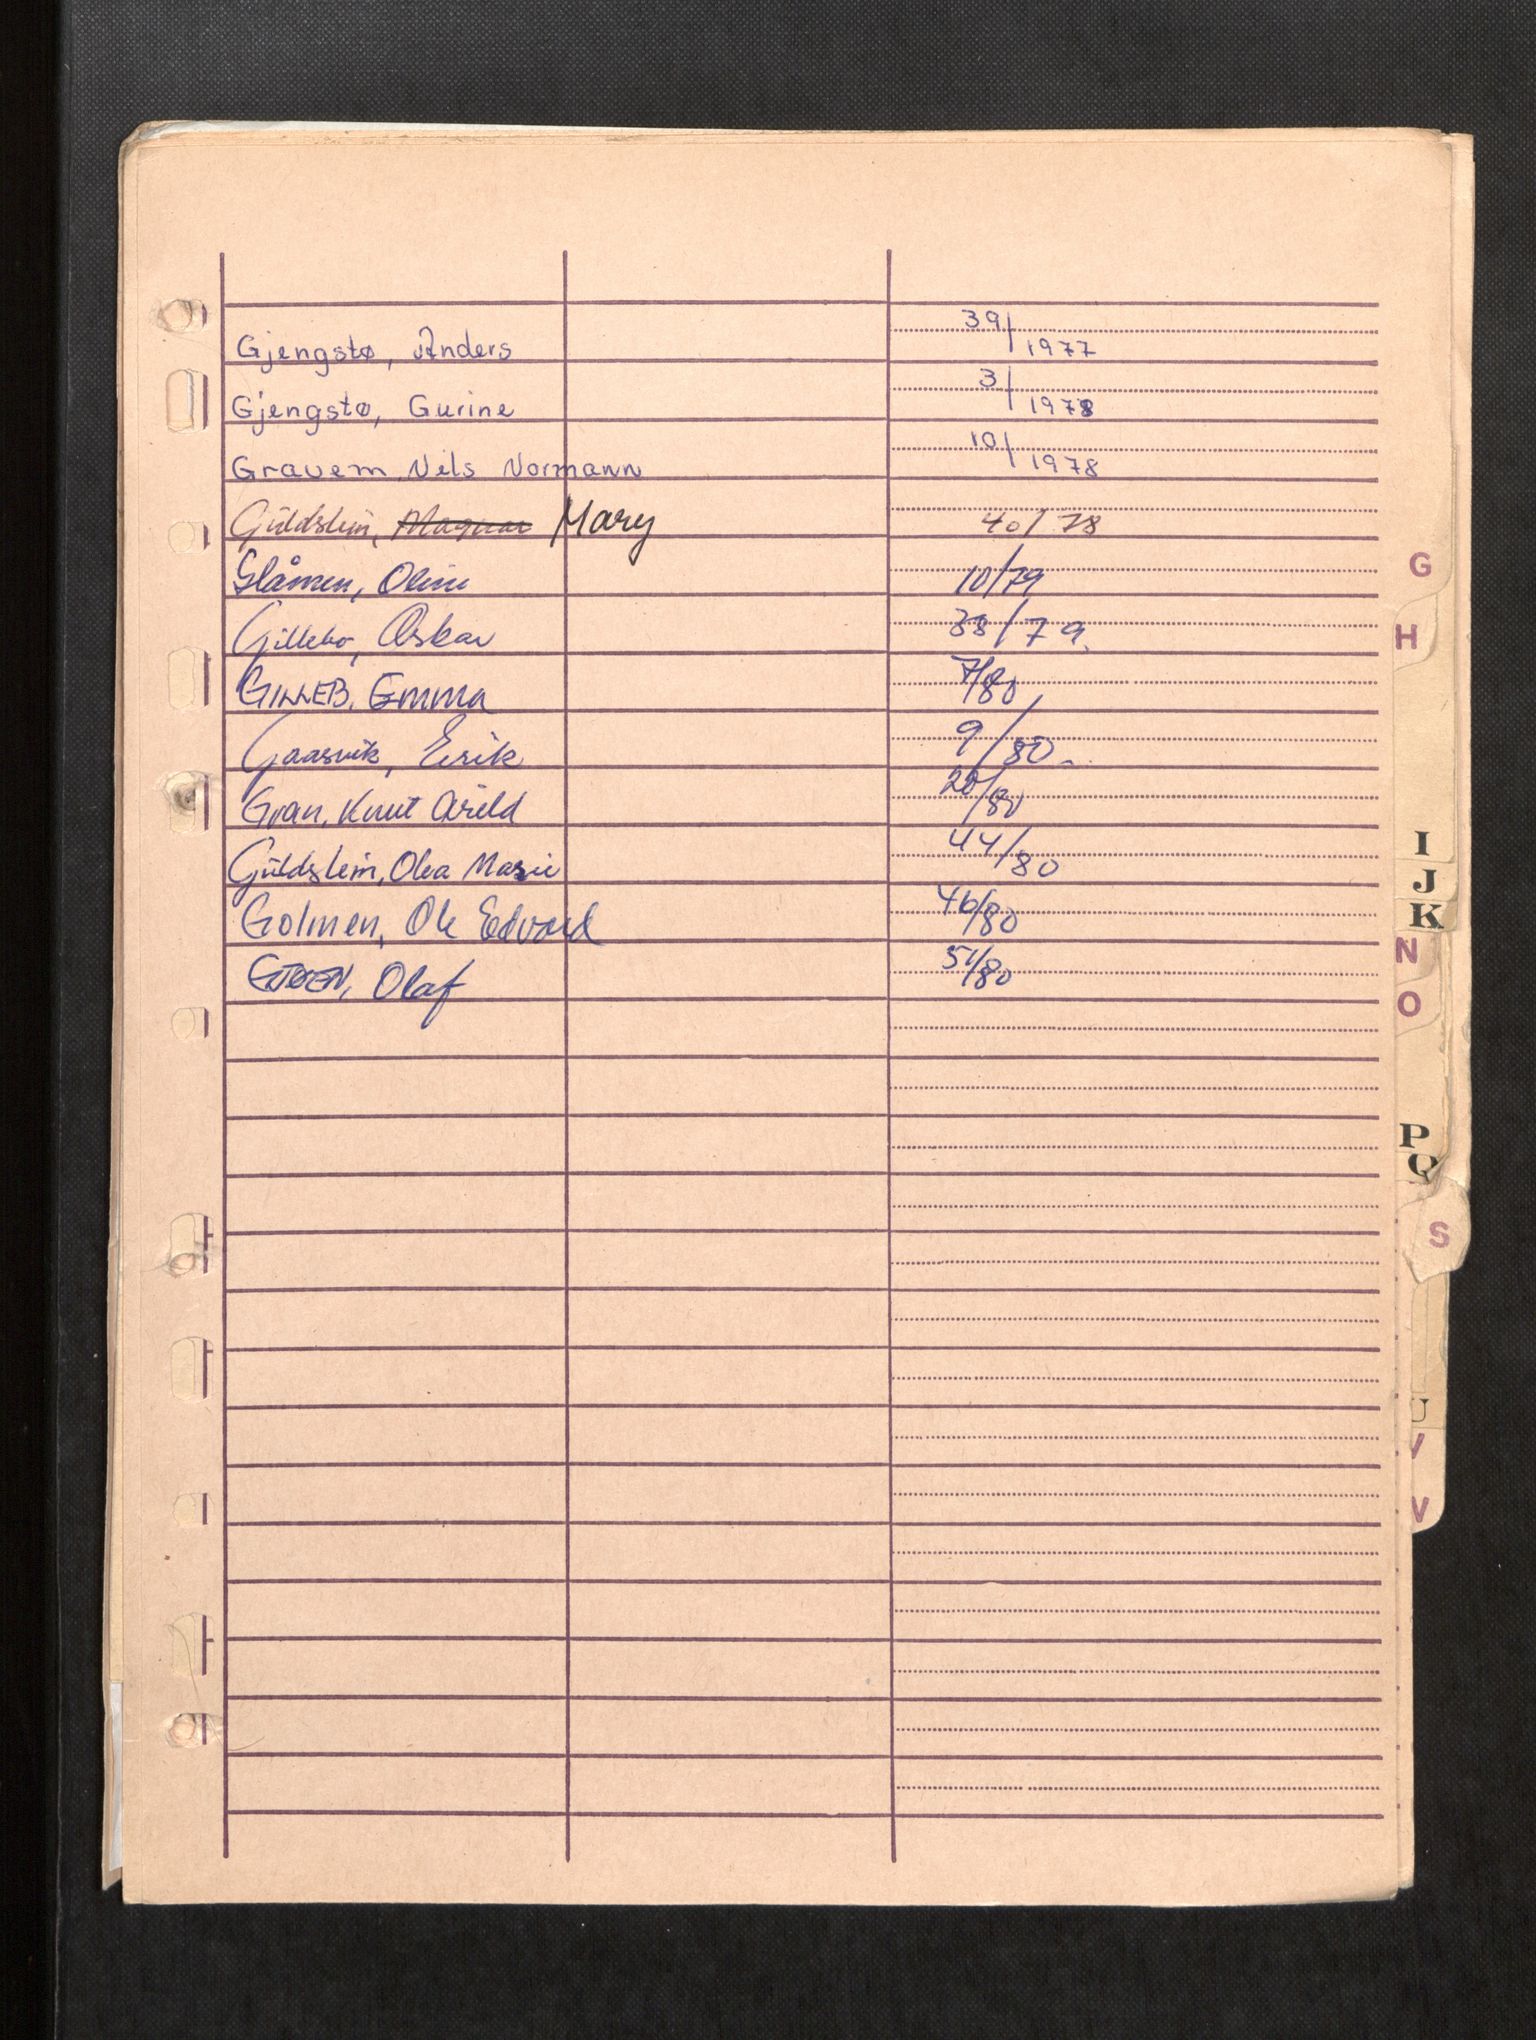 Gjengstø, Anders 39/1977
Gjengstø, Gurine 3/1978
Gravem Nils Normann 10/1978
Güldstein, Magnar Mary 40/78
Glåmen, Oline 10/79
Gillebo, Oskar 38/79.
GILLEB. Emma 7/80
Gaasvik, Erik 9/80
Gran, Knut Arild 20/80
Güldstein, Olea Marie 44/80
Golmen, Ole Edvard 46/80
Olaf 51/80
G
H
I
J
K
N
O
P
Q
S
U
V
W